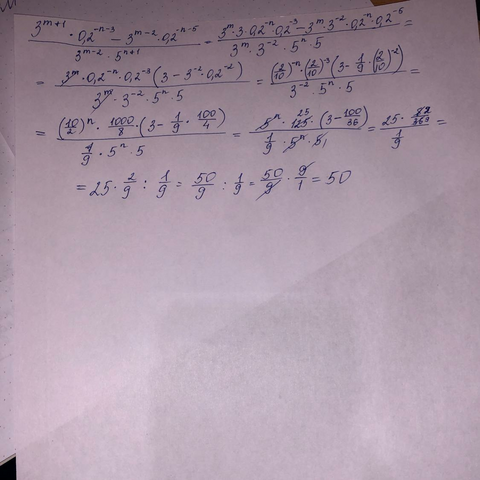 (3^{m+1} · 0,2^{-n-3} − 3^{m-2} · 0,2^{-n-5}) / (3^{m-2} · 5^{n+1}) = (3^m · 3 · 0,2^{-n} · 0,2^{-3} − 3^m · 3^{-2} · 0,2^{-n} · 0,2^{-5}) / (3^m · 3^{-2} · 5^n · 5) =
= (3^m · 0,2^{-n} · 0,2^{-3} (3 − 3^{-2} · 0,2^{-2})) / (3^m · 3^{-2} · 5^n · 5) = ((2/10)^{-n} · (2/10)^{-3} (3 − 1/9 · (2/10)^{-2})) / (3^{-2} · 5^n · 5) =
= ((10/2)^n · 1000/8 · (3 − 1/9 · 100/4)) / (1/9 · 5^n · 5) = (5^n · 125 · (3 − 100/36)) / (1/9 · 5^n · 5) = (25 · ) / (1/9) =
= 25 · 2/9 : 1/9 = 50/9 : 1/9 = 50/9 · 9/1 = 50